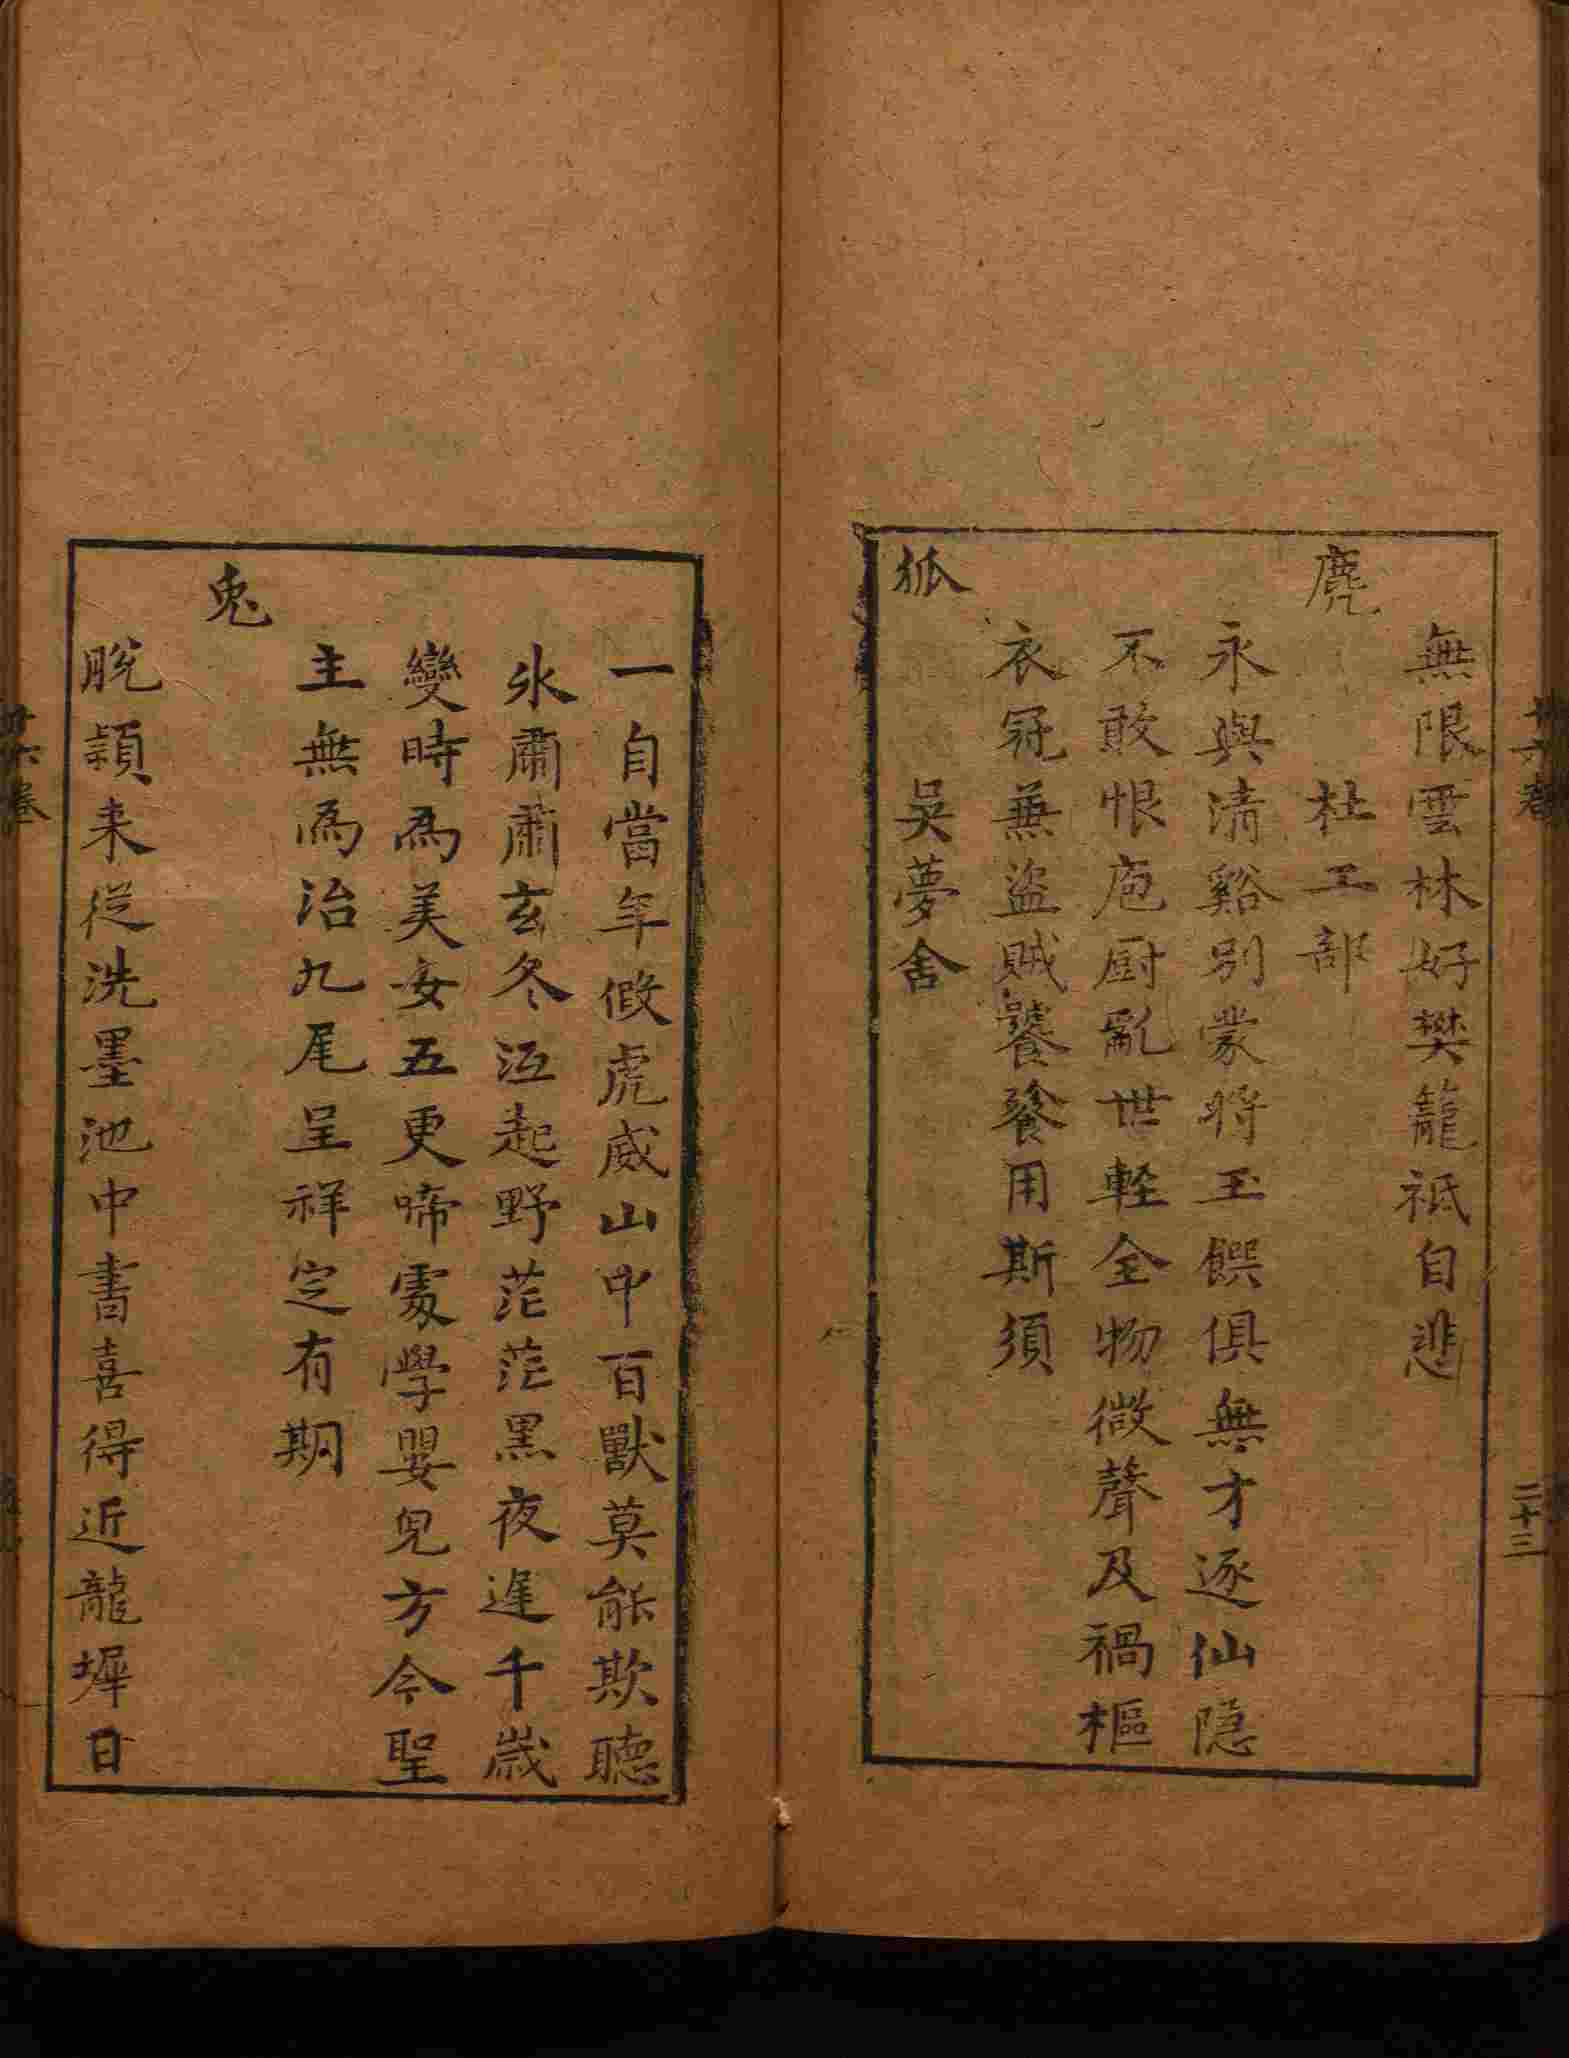 無限雲林好樊籠祗自悲
麂
杜工部
永與清谿別蒙將玉饌俱無才逐仙隐
不敢恨庖厨亂世軽全物微聲及禍樞
衣冠兼盜賊饕餮用斯須
狐
吳夢舍
一自當年假虎威山中百獸莫能欺聽
氷肅肅玄冬沍起野茫茫黒夜遅千歳
變時為美女五更啼處學嬰兒方今聖
主無為治九尾呈祥定有期
兎
脫穎来從洗墨池中書喜得近龍墀日
二十三